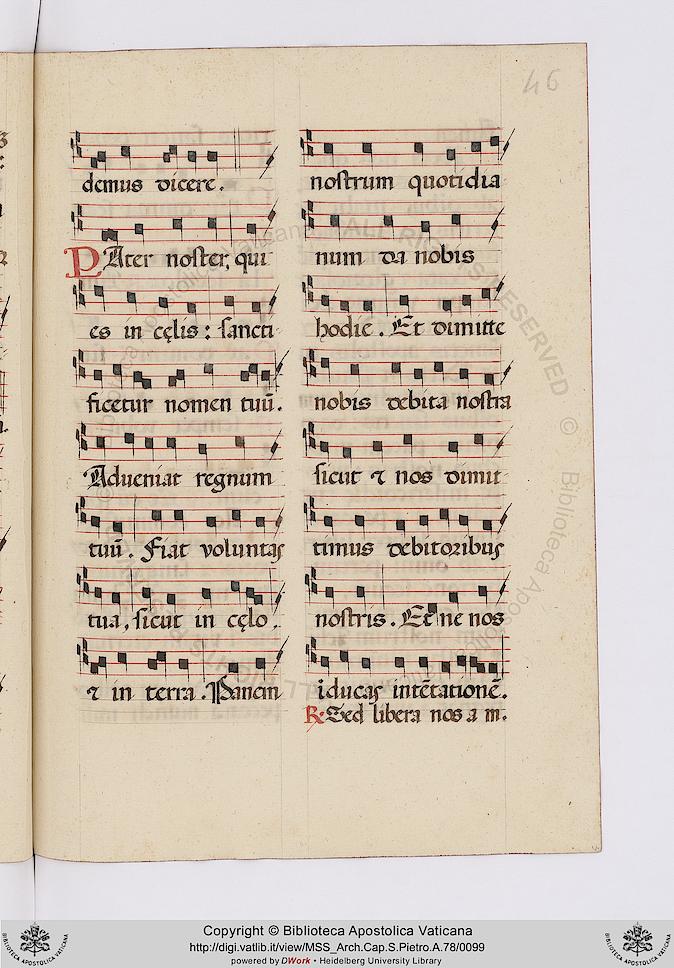 46
demus dicere.
PAter noster, qui
es in cęlis : sancti
ficetur nomen tuū.
Adueniat regnum
tuū. Fiat voluntas
tua, sicut in cęlo.
⁊ in terra. Panem
nostrum quotidia
num da nobis
hodie. Et dimitte
nobis debita nostra
sicut ⁊ nos dimit
timus debitoribus
nostris. Et ne nos
īducas intētationē.
R: Sed libera nos a m.
Copyright © Biblioteca Apostolica Vaticana
http://digi.vatlib.it/view/MSS_Arch.Cap.S.Pietro.A.78/0099
powered by DWork • Heidelberg University Library
BIBLIOTECA APOSTOLICA VATICANA
BIBLIOTECA APOSTOLICA VATICANA